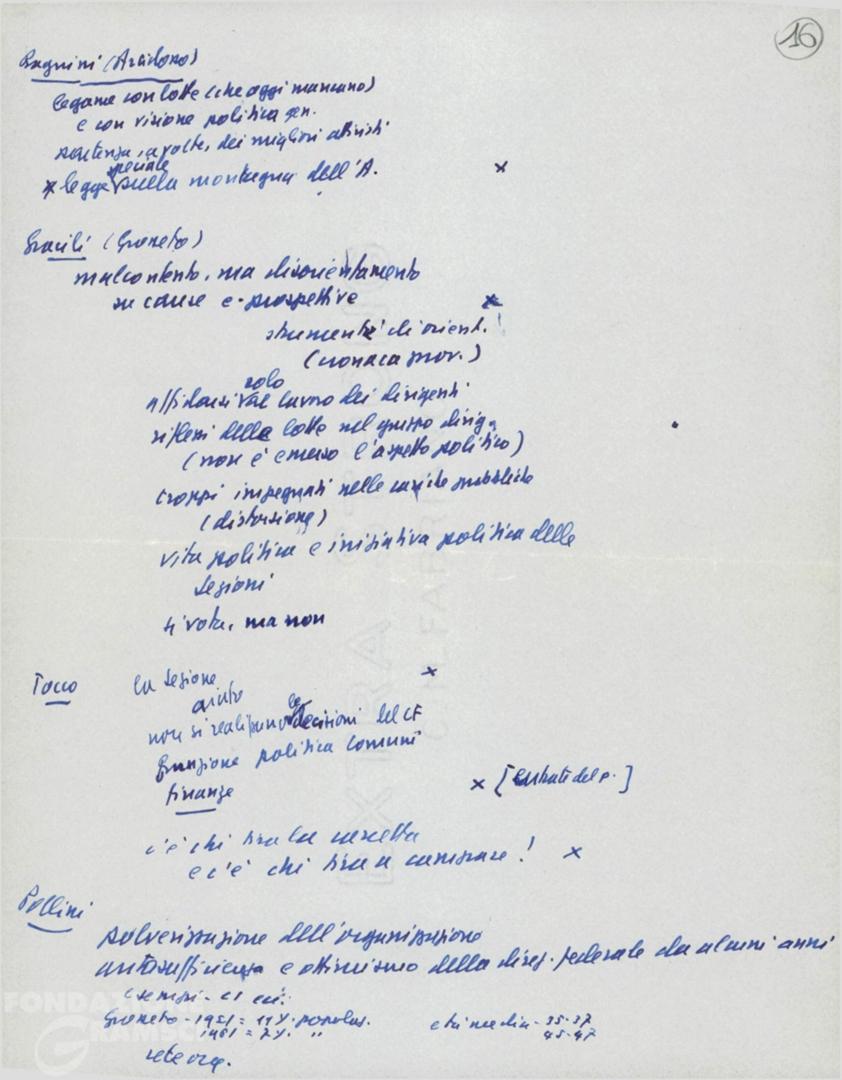 16
Bagnini (Arcidosso)
legame con lotte (che oggi mancano)
e con visione politica gen.
partenza, a volte, dei migliori attivisti
x legge speciale sulla montagna dell'A. x
Gracili (Grosseto)
malcontento, ma disorientamento
su cause e prospettive x
strumenti di orient. !
(cronaca prov.)
affidarsi solo al lavoro dei dirigenti
riflessi della lotte nel gruppo dirig.
(non è emerso l'aspetto politico)
troppi impegnati nelle cariche pubbliche
(distorsione)
vita politica e iniziativa politica delle
sezioni
si vota, ma non
Tacco la sezione x
aiuto
non si realizzano le decisioni del CF
funzione politica comuni
finanze x [entrate del p.]
c'è chi tira la carretta
e c'è chi tira a campare! x
Pollini
polverizzazione dell'organizzazione
autosufficienza e ottimismo della direz. federale da alcuni anni
esempi
Grosseto - 1951 = 11% popolaz. età media - 35-37
1961 = 7% " 45-47
rete org.
FONDAZIONE
GRAMSCI
EXTRA